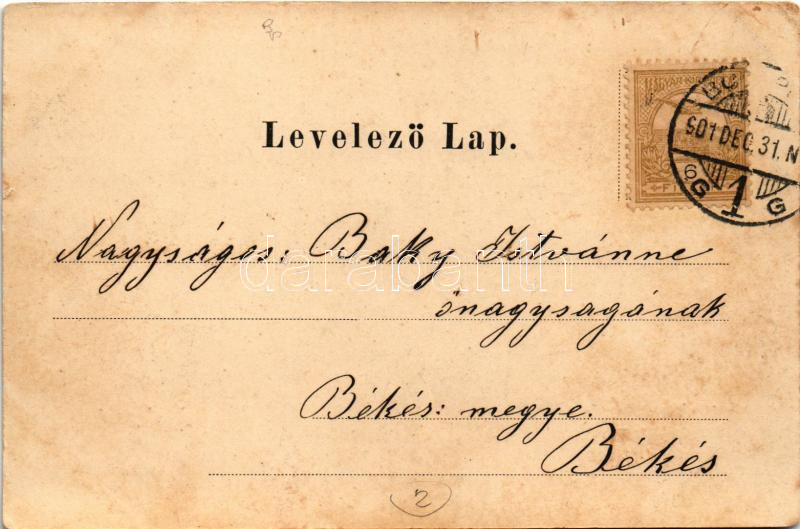 Levelező Lap.
901 DEC. 31. N
6 G 1 G
Nagyságos: Baky Istvánne
darabanth
önagyságának
Békés: megye.
Békés
2